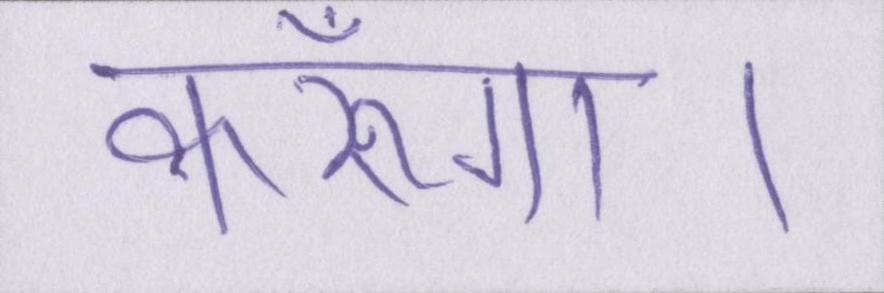 करूँगा ।